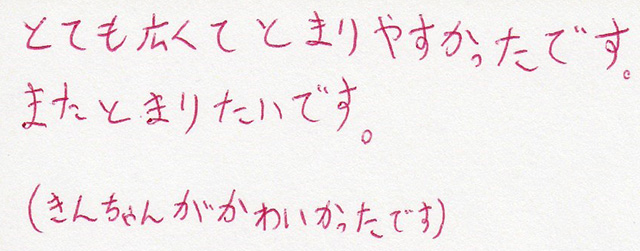 とても広くてとまりやすかったです。
またとまりたいです。
(きんちゃんがかわいかったです)